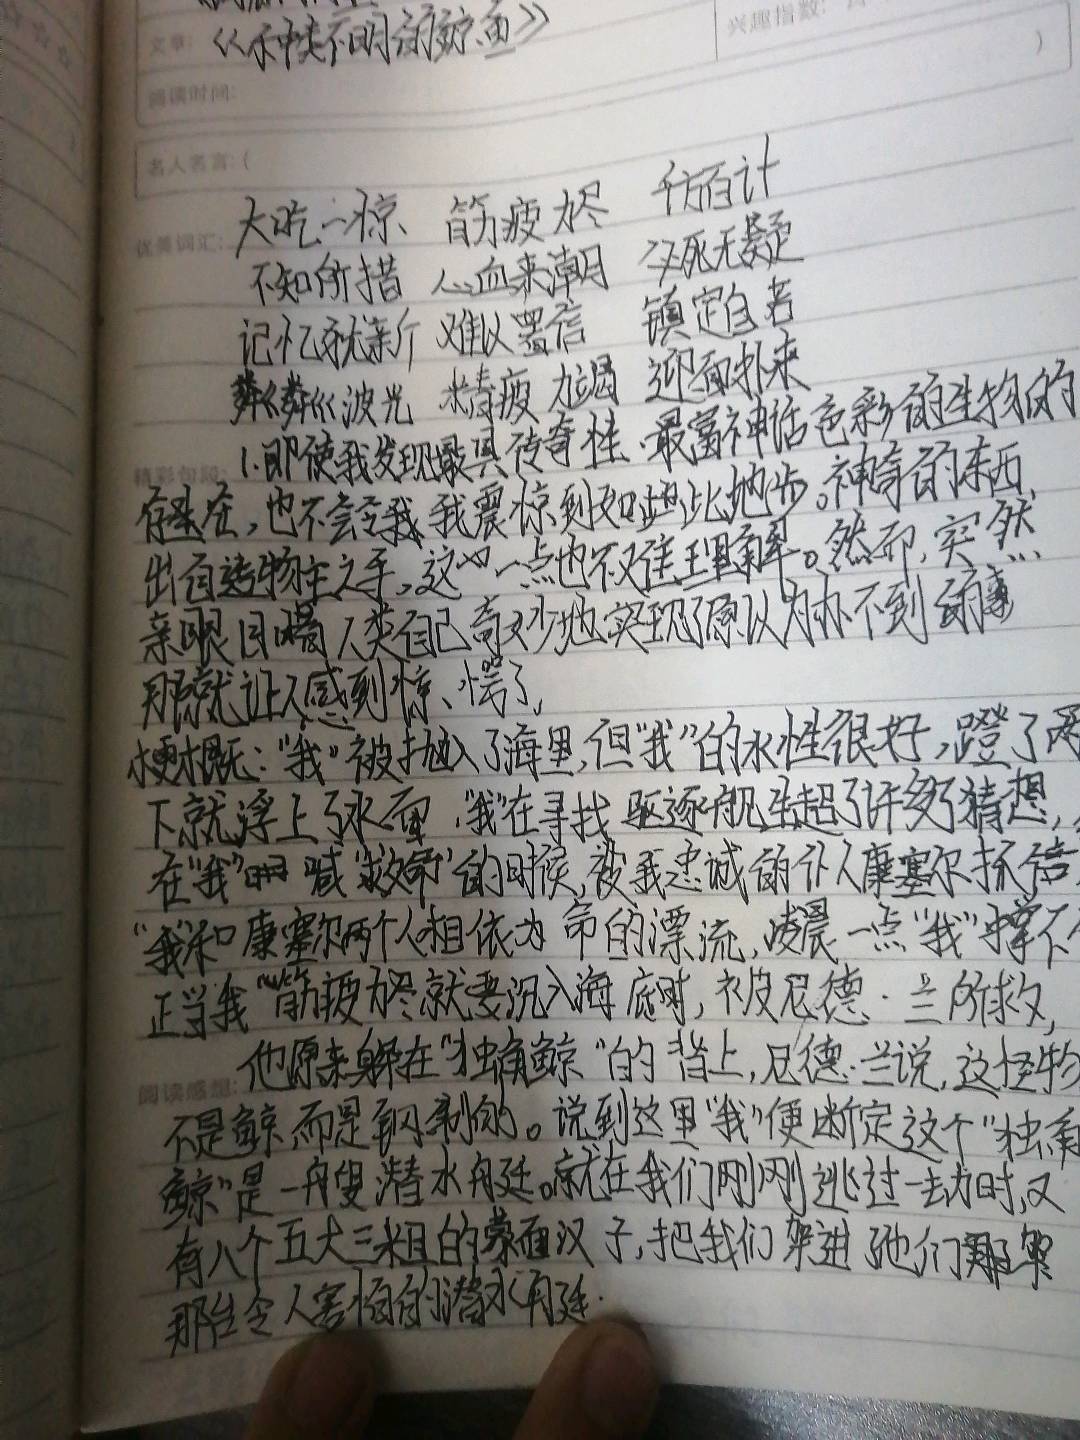 兴趣指数:
文章: 《不中类不明的鲸鱼》
阅读时间:
名人名言:(
大吃一惊 筋疲力尽 千方百计
优美词汇:
不知所措 心血来潮 必死无疑
记忆犹新 难以置信 镇定自若
粼粼波光 精疲力竭 迎面扑来
精彩句段:
1.即使我发现最具传奇性.最富神话色彩的生物的
存在,也不会令我震惊到如此地步。神奇的东西,
出自造物主之手。这一点也不难理解。然而,突然
亲眼目睹人类自己奇妙地实现了原以为办不到的事
那就让人感到惊愕了,
梗概:"我"被抛入了海里,但"我"的水性很好,蹬了两
下就浮上了水面,"我"在寻找驱逐舰生起了许多猜想,
在"我"喊"救命"的时候,被我忠诚的仆人康塞尔抓信,
"我"和康塞尔两个人相依为命的漂流,凌晨一点"我"撑不
正当我"筋疲力尽就要沉入海底时,被尼德·兰所救,
他原来躲在"独角鲸"的背上,尼德·兰说,这怪物
阅读感想:
不是鲸,而是钢制的。说到这里"我"便断定这个"独角
鲸"是一艘潜水艇。就在我们刚刚逃过一劫时,又
有八个五大三粗的蒙面汉子,把我们架进了他们那架
那么令人害怕的潜水艇.